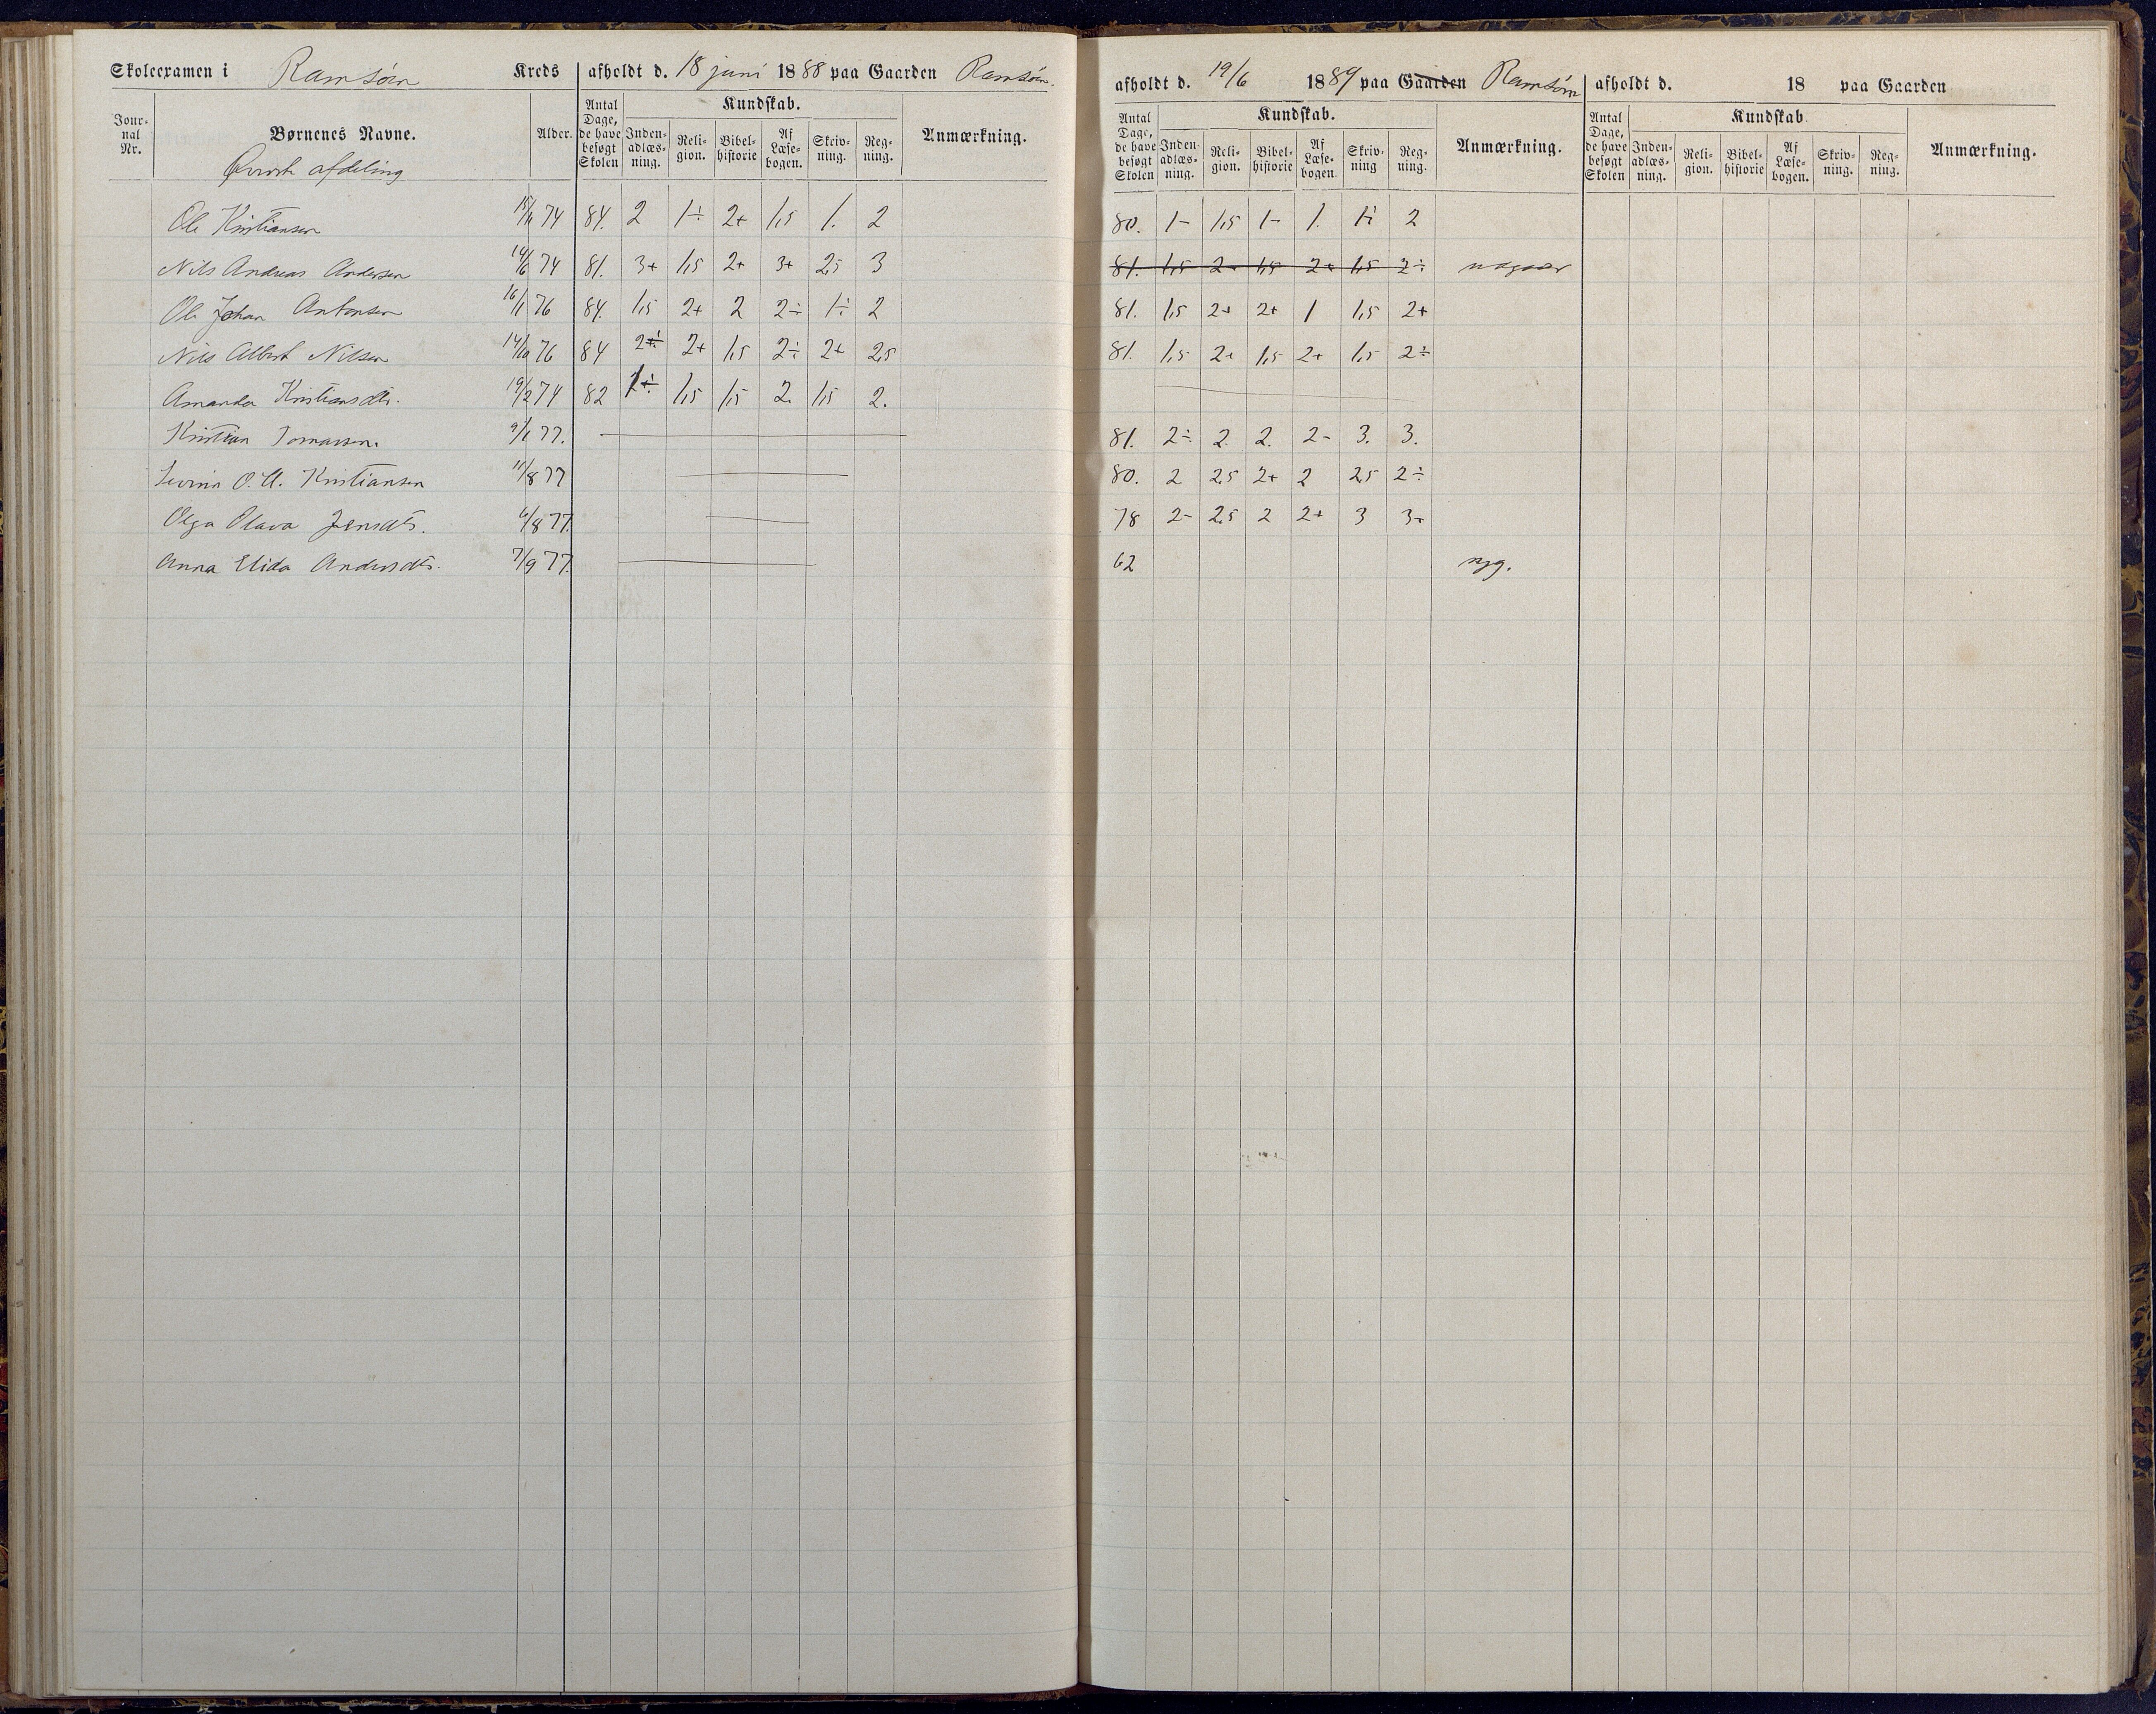 Skoleexamen i Ramsöen Kreds afholdt d. 18 juni 1888 paa Gaarden Ramsöen.
afholdt d. 19/6 1889 paa Gaarden Ramsöen afholdt d. 18 paa Gaarden
Jour-nal Nr. Børnenes Navne. Alder. Antal Dage, de have besøgt Skolen Kundskab. Inden-adlæs-ning. Reli-gion. Bibel-historie Af Læse-bogen. Skriv-ning. Reg-ning. Anmærkning.
Antal Dage, de have besøgt Skolen Kundskab. Inden-adlæs-ning. Reli-gion. Bibel-historie Af Læse-bogen. Skriv-ning Reg-ning. Anmærkning.
Antal Dage, de have besøgt Skolen Kundskab Inden-adlæs-ning. Reli-gion. Bibel-historie Af Læse-bogen. Skriv-ning. Reg-ning. Anmærkning.
Øverste afdeling
Ole Kristiansen 74 84. 2 1÷ 2+ 1,5 1. 2 80. 1- 1,5 1- 1. 1÷ 2
Nils Andreas Andersen 14/6 74 81. 3+ 1,5 2+ 3+ 2,5 3 81. 1,5 2+ 1,5 2+ 1,5 2÷ udgaar
Ole Johan Antonsen 16/1 76 84. 1,5 2+ 2 2÷ 1÷ 2 81. 1,5 2+ 2+ 1 1,5 2+
Nils Albert Nilsen 14/10 76 84 2÷ 2+ 1,5 2÷ 2+ 2,5 81. 1,5 2+ 1,5 2+ 1,5 2÷
Amanda Kristiansdtr. 19/2 74 82 1÷ 1,5 1,5 2. 1,5 2.
Kristian Tomassen. 9/1 77. 81. 2÷ 2. 2. 2- 3. 3.
O. U. Kristiansen 11/8 77 80. 2 2,5 2+ 2 2,5 2÷
Olga Olava Jensdtr. 6/8 77. 78 2- 2,5 2 2+ 3 3+
Anna Elida Andersdtr. 7/9 77. 62 syg.